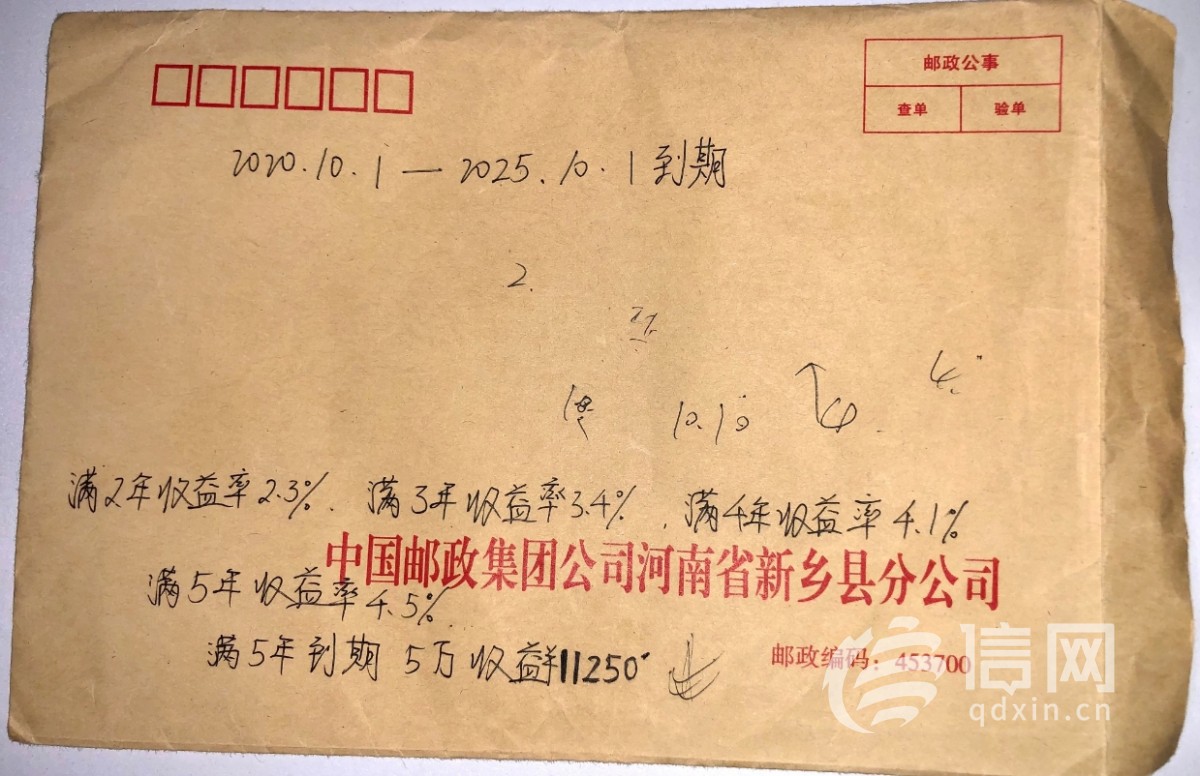 邮政公事
查单 验单
2020.10.1—2025.10.1到期
2.
10.10
4.
满2年收益率2.3%. 满3年收益率3.4%. 满4年收益率4.1%
中国邮政集团公司河南省新乡县分公司
满5年收益率4.5%.
满5年到期 5万收益¥11250
邮政编码：453700
信网
qdxin.cn